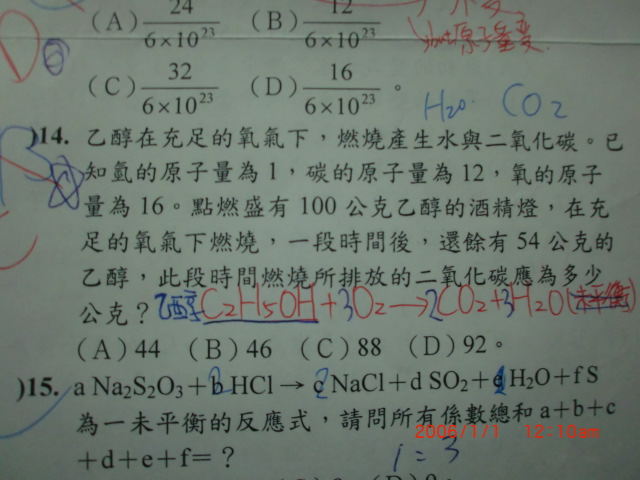 (A) 24/6×10²³ (B) 12/6×10²³
(C) 32/6×10²³ (D) 16/6×10²³ 。
H₂O. CO₂
)14. 乙醇在充足的氧氣下，燃燒產生水與二氧化碳。已
知氫的原子量為 1，碳的原子量為 12，氧的原子
量為 16。點燃盛有 100 公克乙醇的酒精燈，在充
足的氧氣下燃燒，一段時間後，還餘有 54 公克的
乙醇，此段時間燃燒所排放的二氧化碳應為多少
公克？ 乙醇 C₂H₅OH + 3O₂ → 2CO₂ + 3H₂O (未平衡)
(A) 44 (B) 46 (C) 88 (D) 92。
)15. a Na₂S₂O₃ + b HCl → c NaCl + d SO₂ + e H₂O + f S
為一未平衡的反應式，請問所有係數總和 a+b+c
2006/1/1 12:10am
+d+e+f=？ 1:3